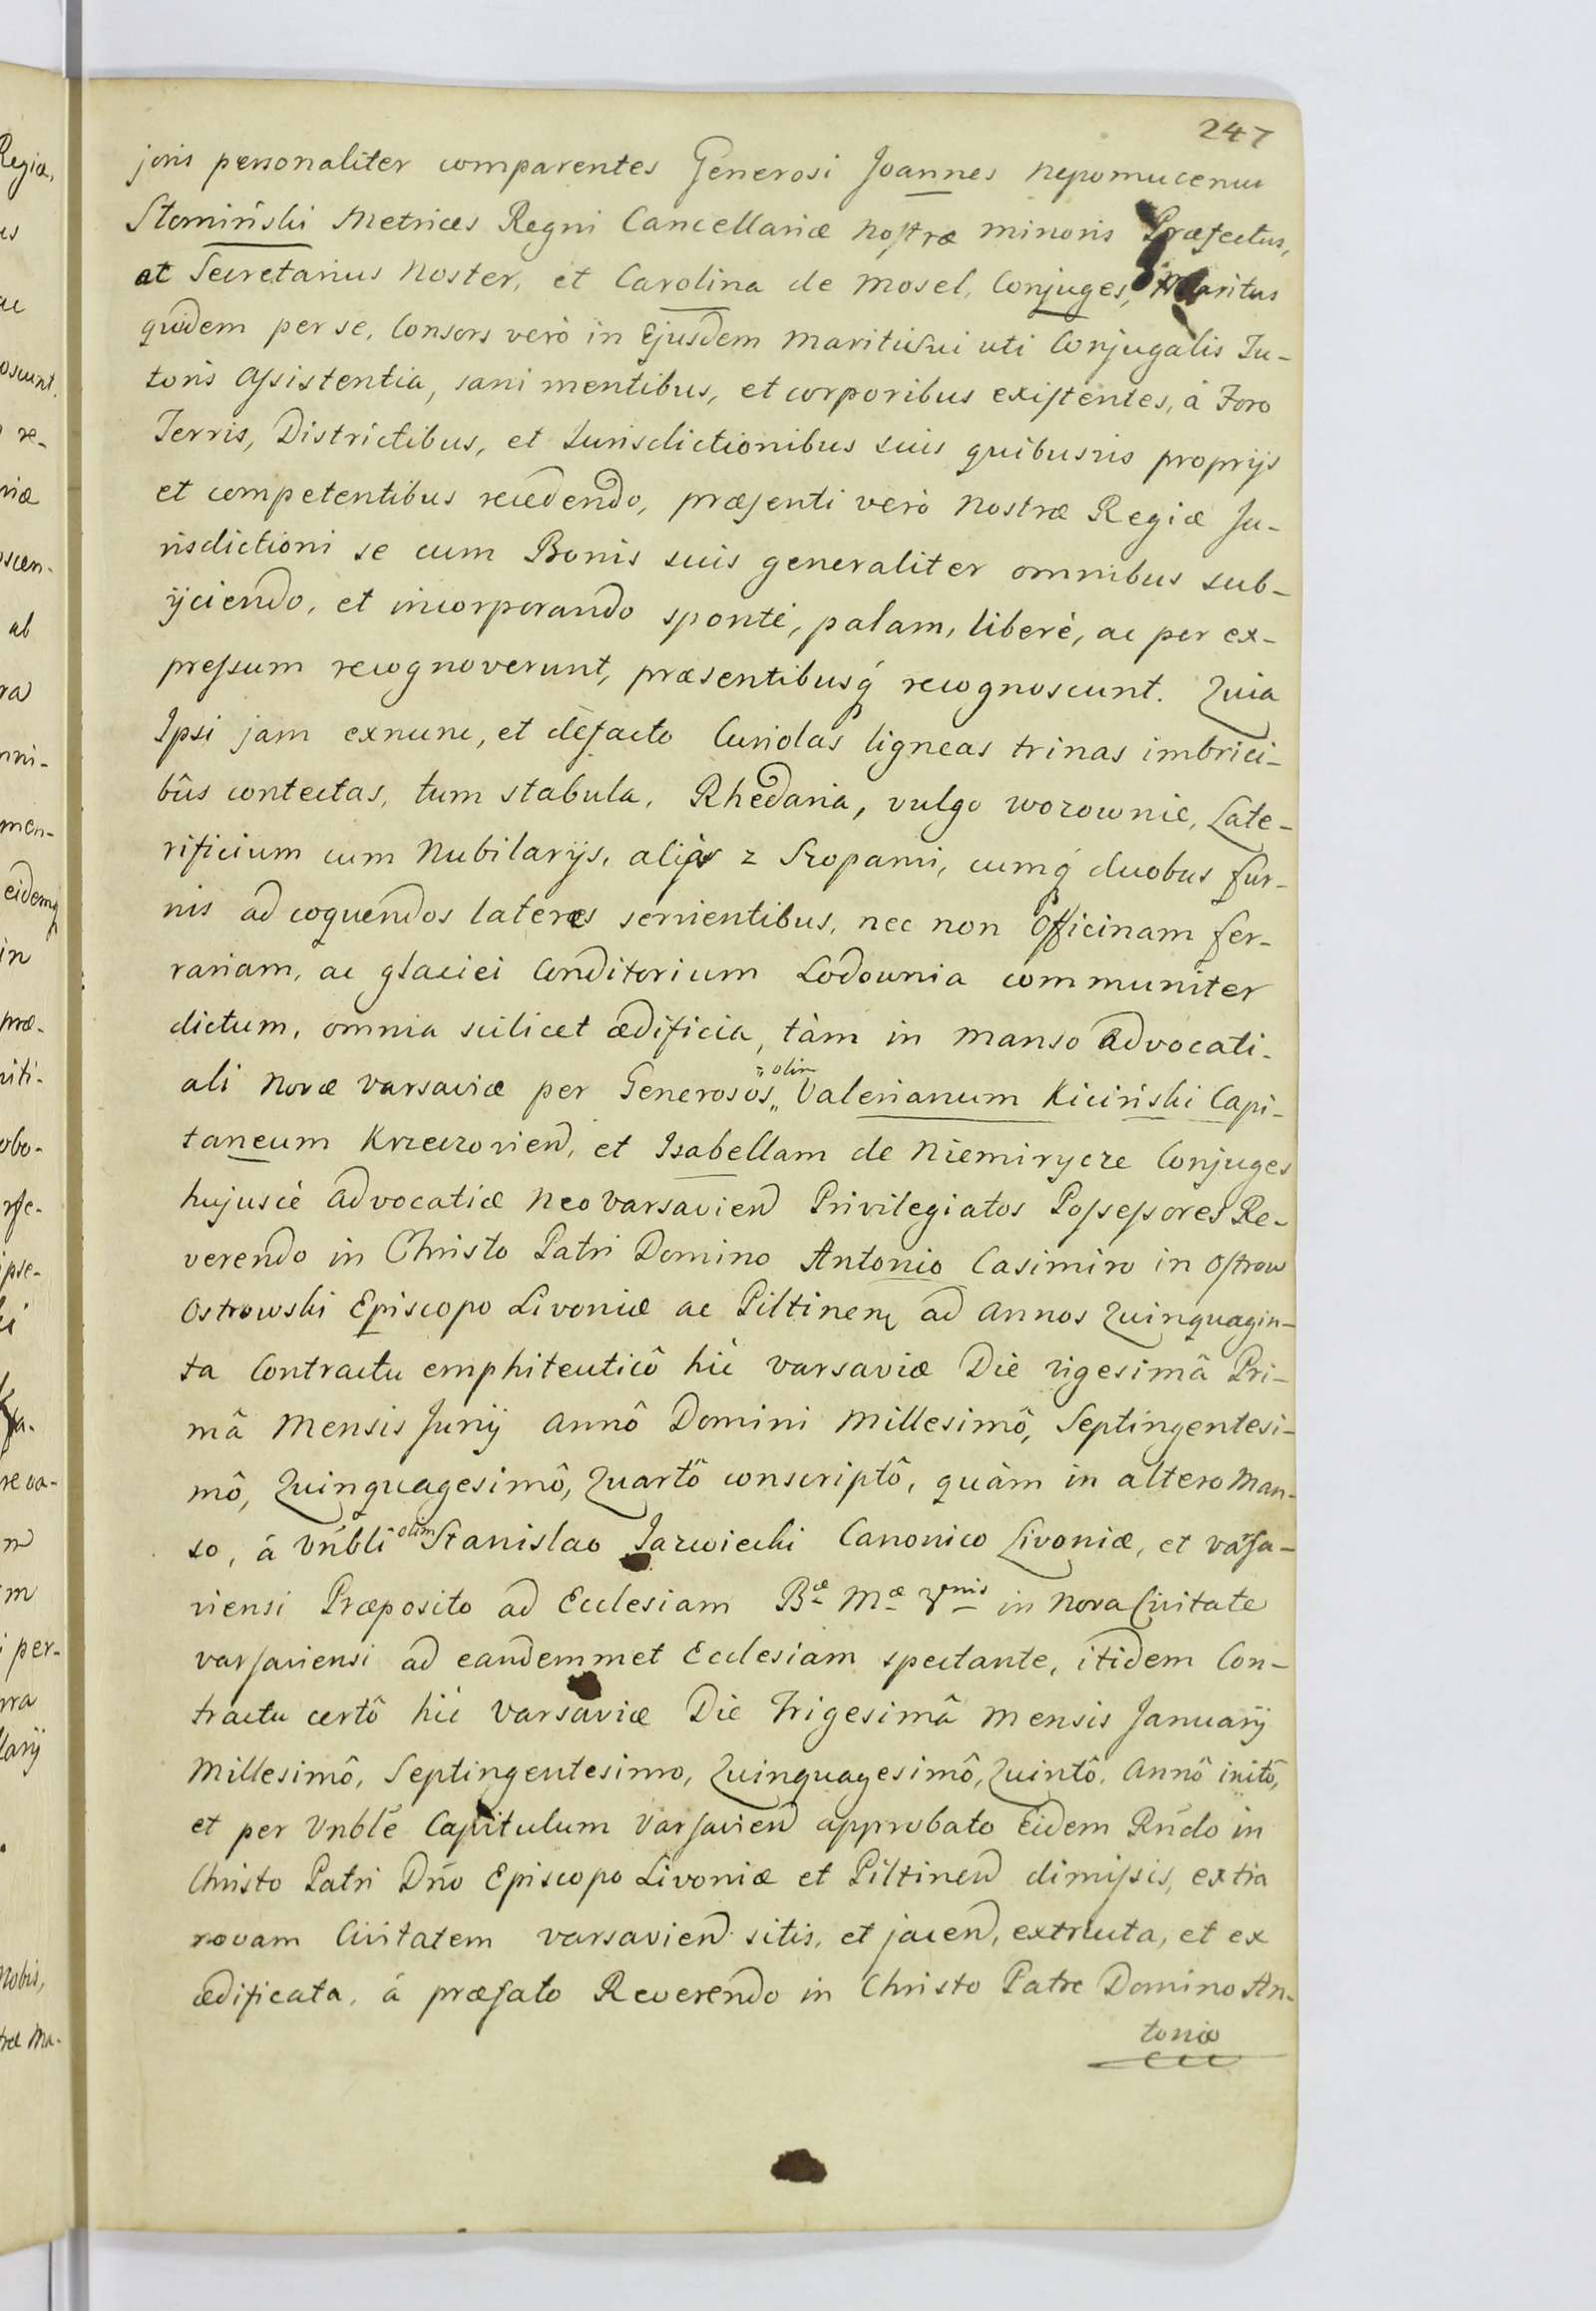 247
joris personaliter comparentes Generosi Joannes Nepomucenus
Słomiński Metrices Regni Cancellariæ Nostræ minoris Præfectus,
at Secretarius Noster, et Carolina de Mosel, Conjuges, Maritus
quidem per se, Consors verò in Ejusdem Maritisui uti Conjugalis Tu-
toris assistentia, sani mentibus, et corporibus existentes, à Foro
Terris, Districtibus, et Jurisdictionibus suis quibusvis proprijs
et competentibus recedendo, præsenti verò Nostræ Regiæ Ju-
risdictioni se cum Bonis suis generaliter omnibus sub-
ijciendo, et incorporando spontè, palam, liberè, ac per ex-
pressum recognoverunt, præsentibusq́ recognoscunt. Quia
Ipsi jam exnunc, et defacto Curiolas ligneas trinas imbrici-
bûs contectas, tum stabula, Rhedaria, vulgo wozownie, Late-
rificium cum Nubilarijs, aliàs z Szopami, cumq́ duobus fur-
nis ad coquendos lateres servientibus, nec non Officinam fer-
rariam, ac glaciei Conditorium Lodownia communiter
dictum, omnia scilicet ædificia, tàm in Manso Advocati-
ali Novæ Varsaviæ per Generosos „olim Valerianum Kiciński Capi-
taneum Krzeczovien, et Isabellam de Niemirycze Conjuges
hujuscè advocatiæ Neo Varsavien Privilegiatos Possessores Re-
verendo in Christo Patri Domino Antonio Casimiro in Ostrow
Ostrowski Episcopo Livoniæ ac Piltinen ad annos Quinquagin-
ta Contractu emphiteuticô hìc Varsaviæ Die vigesimâ Pri-
mâ Mensis Junij annô Domini Millesimô, Septingentesi-
mô, Quinquagesimô, Quartô conscriptô, quàm in altero Man-
so, á Vnbli olim Stanislao Jarwiecki Canonico Livoniæ, et Varsa-
viensi Præposito ad Ecclesiam Bæ Mæ Vnis in Nova Civitate
Varsaviensi ad eandemmet Ecclesiam spectante, itidem Con-
tractu certô hìc Varsaviæ Die Trigesimâ Mensis Januarij
Millesimô, Septingentesimo, Quinquagesimô, Quintô, Annô initô,
et per Vnble Capitulum Varsavien approbato Eidem Rńdo in
Christo Patri Dńo Episcopo Livoniæ et Piltinen dimissis, extra
novam Civitatem Varsavien sitis, et jacen, extructa, et ex
ædificata, á præfato Reverendo in Christo Patre Domino An-
tonio